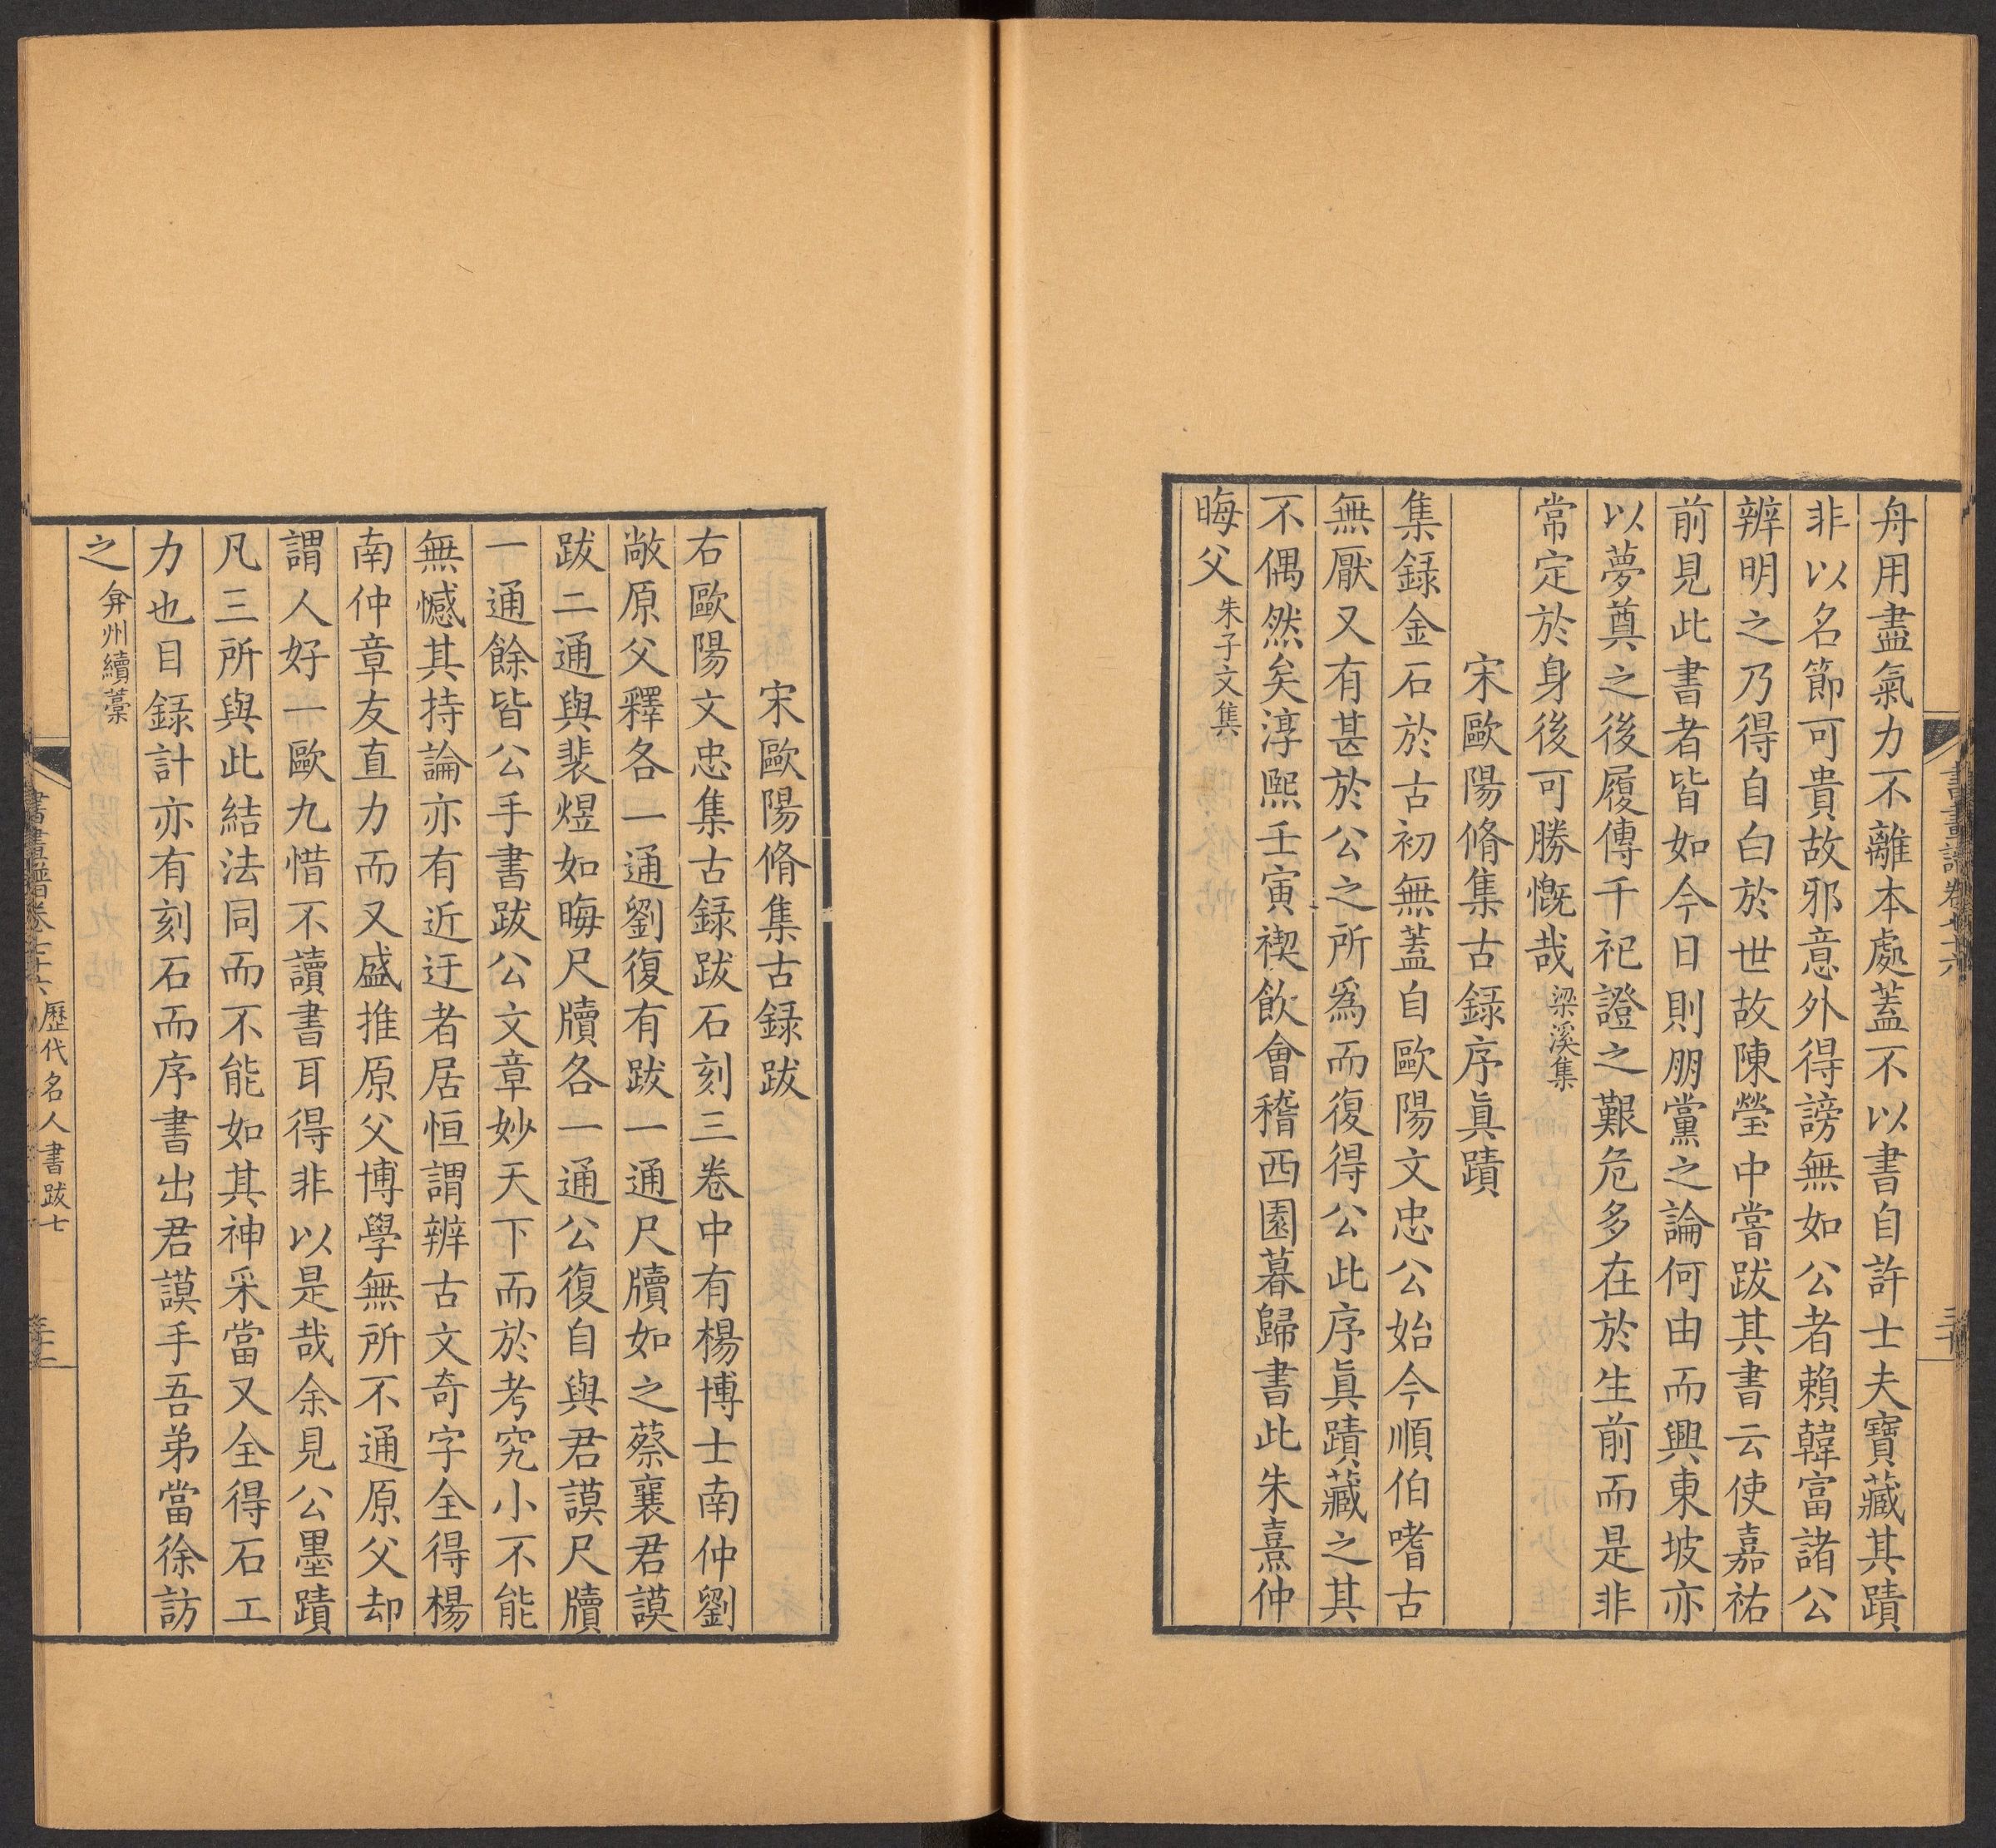 舟用盡氣力不離本處蓋不以書自許士夫寶藏其蹟
非以名節可貴故邪意外得謗無如公者賴韓富諸公
辨明之乃得自白於世故陳瑩中嘗跋其書云使嘉祐
前見此書者皆如今日則朋黨之論何由而興東坡亦
以夢奠之後履傳千祀證之艱危多在於生前而是非
常定於身後可勝慨哉 梁溪集
宋歐陽脩集古録序眞蹟
集録金石於古初無蓋自歐陽文忠公始今順伯嗜古
無厭又有甚於公之所爲而復得公此序眞蹟藏之其
不偶然矣淳熙壬寅禊飲會稽西園暮歸書此朱熹仲
晦父 朱子文集
宋歐陽脩集古録跋
右歐陽文忠集古録跋石刻三卷中有楊博士南仲劉
敞原父釋各一通劉復有跋一通尺牘如之蔡襄君謨
跋二通與裴煜如晦尺牘各一通公復自與君謨尺牘
一通餘皆公手書跋公文章妙天下而於考究小不能
無憾其持論亦有近迂者居恒謂辨古文奇字全得楊
南仲章友直力而又盛推原父博學無所不通原父却
謂人好一歐九惜不讀書耳得非以是哉余見公墨蹟
凡三所與此結法同而不能如其神采當又全得石工
力也目録計亦有刻石而序書出君謨手吾弟當徐訪
之 弇州續藁
歷代名人書跋七